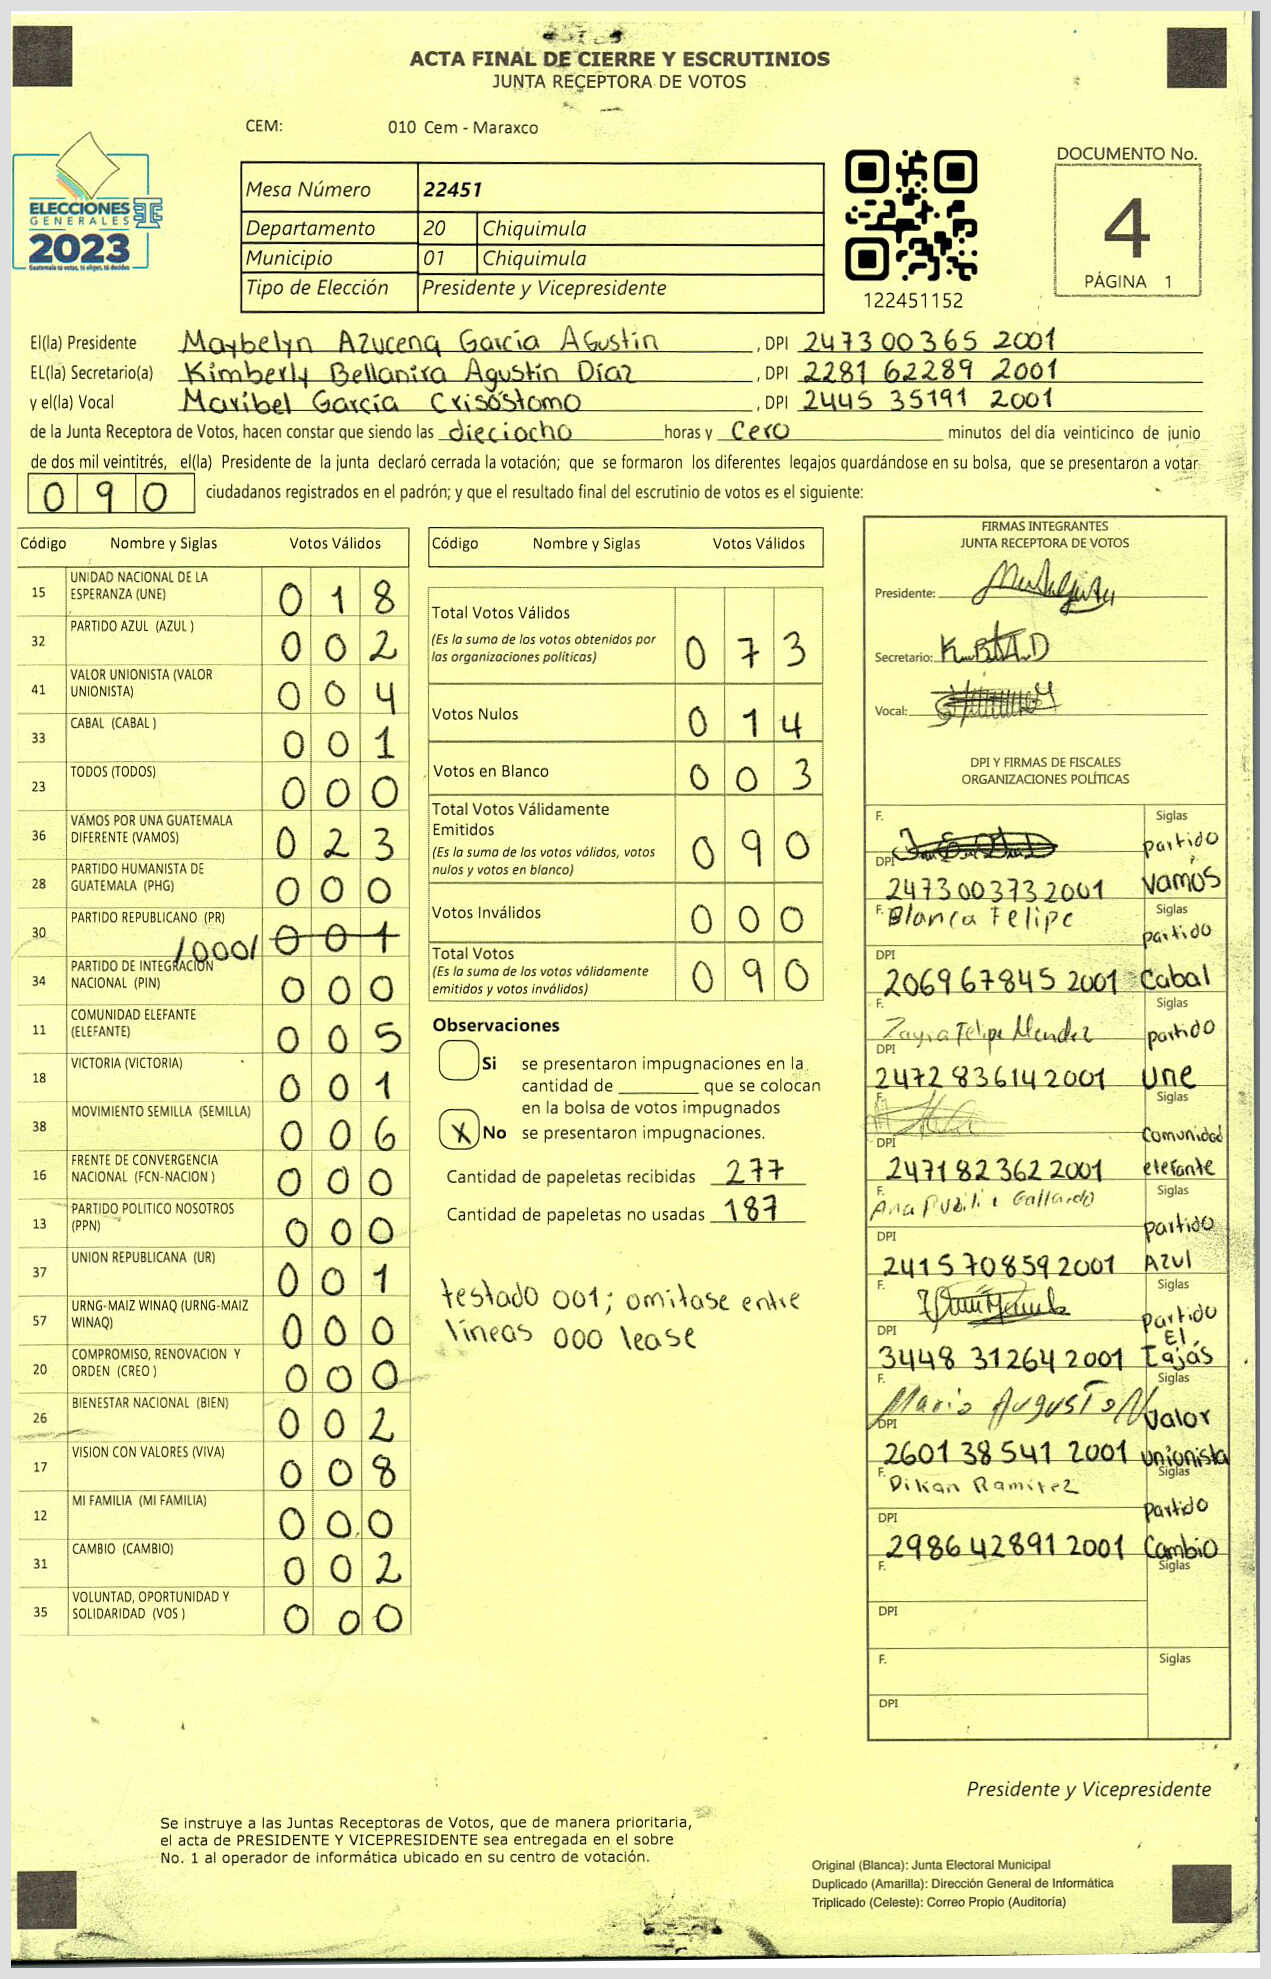 ACTA FINAL DE CIERRE Y ESCRUTINIOS
JUNTA RECEPTORA DE VOTOS
CEM: 010 Cem - Maraxco
ELECCIONES
GENERALES
2023
Guatemala tú votas, tú eliges, tú decides
Mesa Número 22451
Departamento 20 Chiquimula
Municipio 01 Chiquimula
Tipo de Elección Presidente y Vicepresidente
122451152
DOCUMENTO No.
4
PÁGINA 1
El(la) Presidente Maybelyn Azucena García Agustin , DPI 2473 00365 2001
EL(la) Secretario(a) Kimberly Bellanira Agustín Díaz , DPI 2281 62289 2001
y el(la) Vocal Maribel García Crisóstomo , DPI 2445 35191 2001
de la Junta Receptora de Votos, hacen constar que siendo las dieciocho horas y Cero minutos del día veinticinco de junio
de dos mil veintitrés, el(la) Presidente de la junta declaró cerrada la votación; que se formaron los diferentes legajos guardándose en su bolsa, que se presentaron a votar
0 9 0 ciudadanos registrados en el padrón; y que el resultado final del escrutinio de votos es el siguiente:
Código Nombre y Siglas Votos Válidos
15 UNIDAD NACIONAL DE LA ESPERANZA (UNE) 0 1 8
32 PARTIDO AZUL (AZUL ) 0 0 2
41 VALOR UNIONISTA (VALOR UNIONISTA) 0 0 4
33 CABAL (CABAL ) 0 0 1
23 TODOS (TODOS) 0 0 0
36 VAMOS POR UNA GUATEMALA DIFERENTE (VAMOS) 0 2 3
28 PARTIDO HUMANISTA DE GUATEMALA (PHG) 0 0 0
30 PARTIDO REPUBLICANO (PR) /000/ 0 0 1
34 PARTIDO DE INTEGRACION NACIONAL (PIN) 0 0 0
11 COMUNIDAD ELEFANTE (ELEFANTE) 0 0 5
18 VICTORIA (VICTORIA) 0 0 1
38 MOVIMIENTO SEMILLA (SEMILLA) 0 0 6
16 FRENTE DE CONVERGENCIA NACIONAL (FCN-NACION ) 0 0 0
13 PARTIDO POLITICO NOSOTROS (PPN) 0 0 0
37 UNION REPUBLICANA (UR) 0 0 1
57 URNG-MAIZ WINAQ (URNG-MAIZ WINAQ) 0 0 0
20 COMPROMISO, RENOVACION Y ORDEN (CREO ) 0 0 0
26 BIENESTAR NACIONAL (BIEN) 0 0 2
17 VISION CON VALORES (VIVA) 0 0 8
12 MI FAMILIA (MI FAMILIA) 0 0 0
31 CAMBIO (CAMBIO) 0 0 2
35 VOLUNTAD, OPORTUNIDAD Y SOLIDARIDAD (VOS ) 0 0 0
Código Nombre y Siglas Votos Válidos
Total Votos Válidos
(Es la suma de los votos obtenidos por
las organizaciones políticas) 0 7 3
Votos Nulos 0 1 4
Votos en Blanco 0 0 3
Total Votos Válidamente
Emitidos
(Es la suma de los votos válidos, votos
nulos y votos en blanco) 0 9 0
Votos Inválidos 0 0 0
Total Votos
(Es la suma de los votos válidamente
emitidos y votos inválidos) 0 9 0
Observaciones
Si se presentaron impugnaciones en la
cantidad de ________ que se colocan
en la bolsa de votos impugnados
X No se presentaron impugnaciones.
Cantidad de papeletas recibidas 277
Cantidad de papeletas no usadas 187
testado 001; omitase entre
líneas 000 lease
FIRMAS INTEGRANTES
JUNTA RECEPTORA DE VOTOS
Presidente:
Secretario:
Vocal:
DPI Y FIRMAS DE FISCALES
ORGANIZACIONES POLÍTICAS
F. Siglas
partido
DPI
2473 00373 2001 Vamos
F. Blanca Felipe Siglas
partido
DPI
2069 67845 2001 Cabal
F. Siglas
Zayra Felipe Mendez partido
DPI
2472 83614 2001 Une
F. Siglas
DPI Comunidad
2471 82362 2001 elefante
F. Siglas
Ana Gallardo
DPI partido
2415 70859 2001 Azul
F. Siglas
DPI partido El
3448 31264 2001 Tajás
F. Siglas
Mario Augusto Valor
DPI
2601 38541 2001 unionista
F. Siglas
Dikan Ramirez
DPI partido
2986 42891 2001 Cambio
F. Siglas
DPI
F. Siglas
DPI
Presidente y Vicepresidente
Se instruye a las Juntas Receptoras de Votos, que de manera prioritaria,
el acta de PRESIDENTE Y VICEPRESIDENTE sea entregada en el sobre
No. 1 al operador de informática ubicado en su centro de votación.
Original (Blanca): Junta Electoral Municipal
Duplicado (Amarilla): Dirección General de Informática
Triplicado (Celeste): Correo Propio (Auditoría)